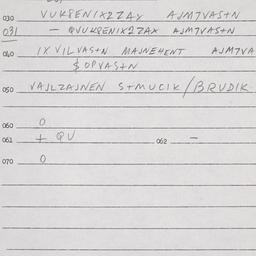 030 VUKPENIXZZAY AJM7VAS+N
031 - QVUKPENIXZZAX AJM7VAS+N
040 IXVILVAS+N MAJNEHENT AJM7VA
$ OPVAS+N
050 VAJLZAJNEN S+MUCIK/BRUDIK
060 0
061 + QU 062 -
070 0